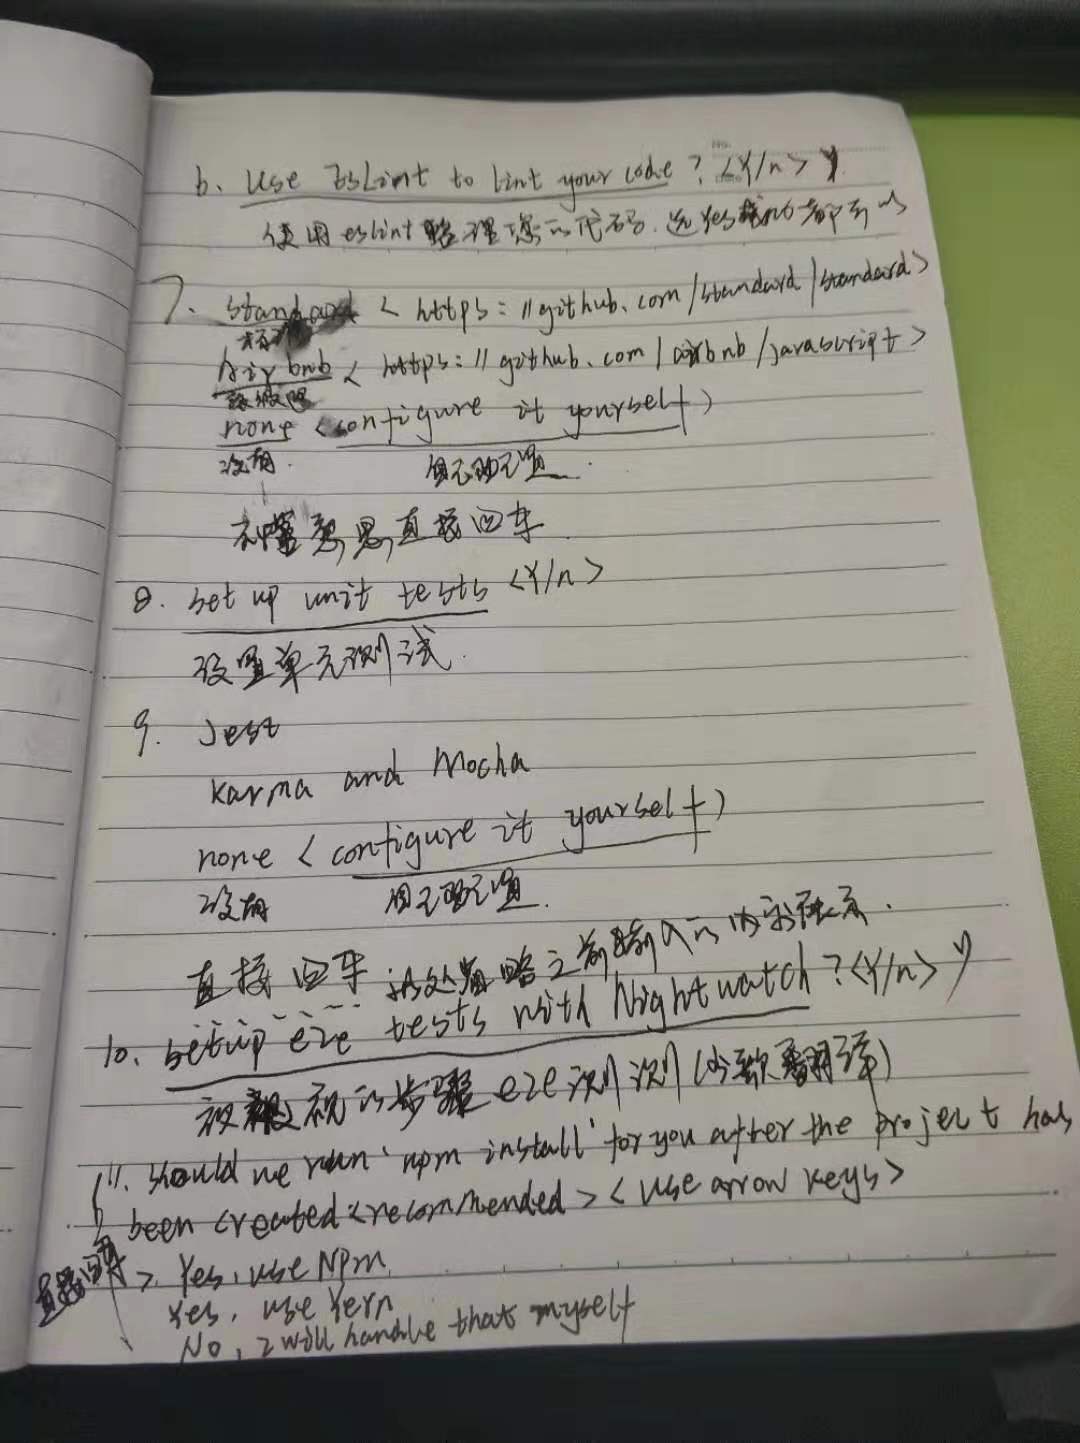 6. Use EsLint to lint your code? <Y/n> Y
使用eslint整理您的代码.选Yes或no都可以
7. standard < https://github.com/standard/standard>
标准
Airbnb < https://github.com/airbnb/javascript>
none <configure it yourself)
没有. 自己配置.
直接回车
8. set up unit tests <Y/n>
设置单元测试.
9. Jest
Karma and Mocha
none < configure it yourself)
没有 自己配置.
直接回车 之前输入的内容
10. setup e2e tests with Nightwatch? <Y/n> y
的步骤e2e测 测(翻译)
11. Should we run 'npm install' for you after the project has
been created <recommended> <use arrow keys>
直接回车 > Yes, use NPM
Yes, use Yern
No, I will handle that myself